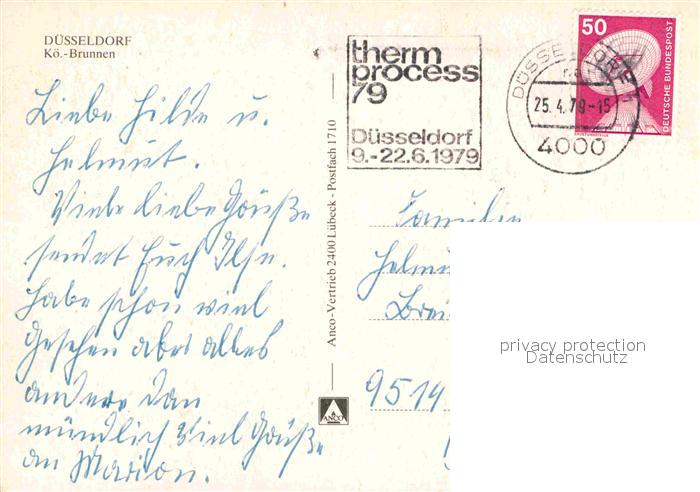 DÜSSELDORF
Kö.-Brunnen
Liebe Hilde u.
Helmut.
Viele liebe Grüße
sendet Euch Ilse.
Habe schon viel
gesehen aber alles
andere dan
mündlich Viel Grüße
an Marion.
Anco-Vertrieb 2400 Lübeck - Postfach 1710
ANCO
therm
process
79
Düsseldorf
9.-22.6.1979
DÜSSELDORF 1
25.4.79-15
4000
50
DEUTSCHE BUNDESPOST
Familie
Helmu
9514
privacy protection
Datenschutz